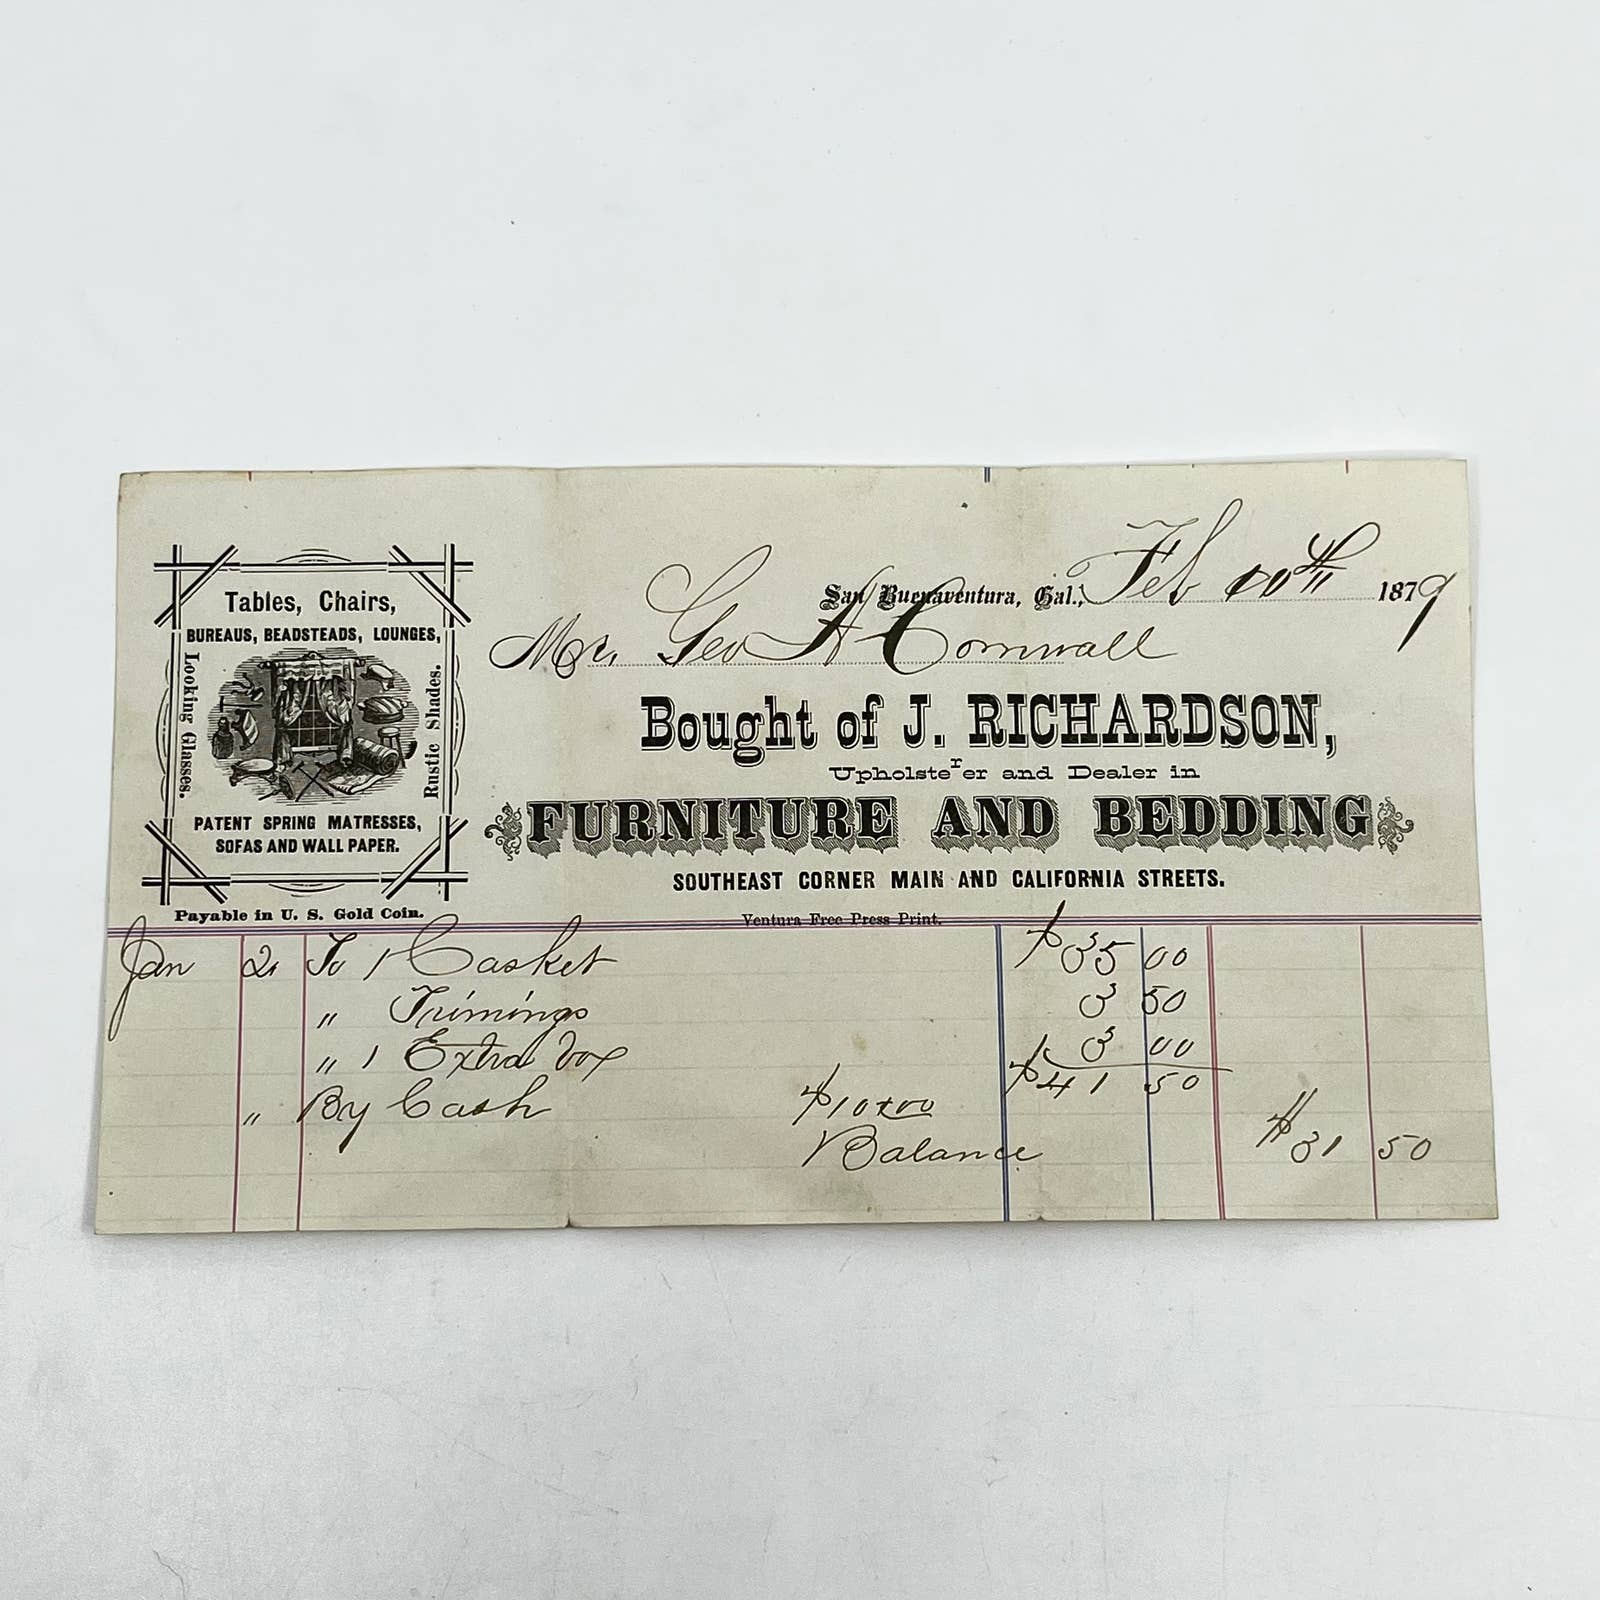 Tables, Chairs,
BUREAUS, BEADSTEADS, LOUNGES,
Looking Glasses.
Rustic Shades.
PATENT SPRING MATRESSES,
SOFAS AND WALL PAPER.
Payable in U. S. Gold Coin.
San Buenaventura, Cal., Feb 10th 1879
Mr. Geo A Cornwall
Bought of J. RICHARDSON,
Upholsterer and Dealer in
FURNITURE AND BEDDING
SOUTHEAST CORNER MAIN AND CALIFORNIA STREETS.
Ventura Free Press Print.
Jan 2 To 1 Casket $35 00
" Trimings 3 50
" 1 Extra box 3 00
$41 50
" By Cash $10.00
Balance $31 50